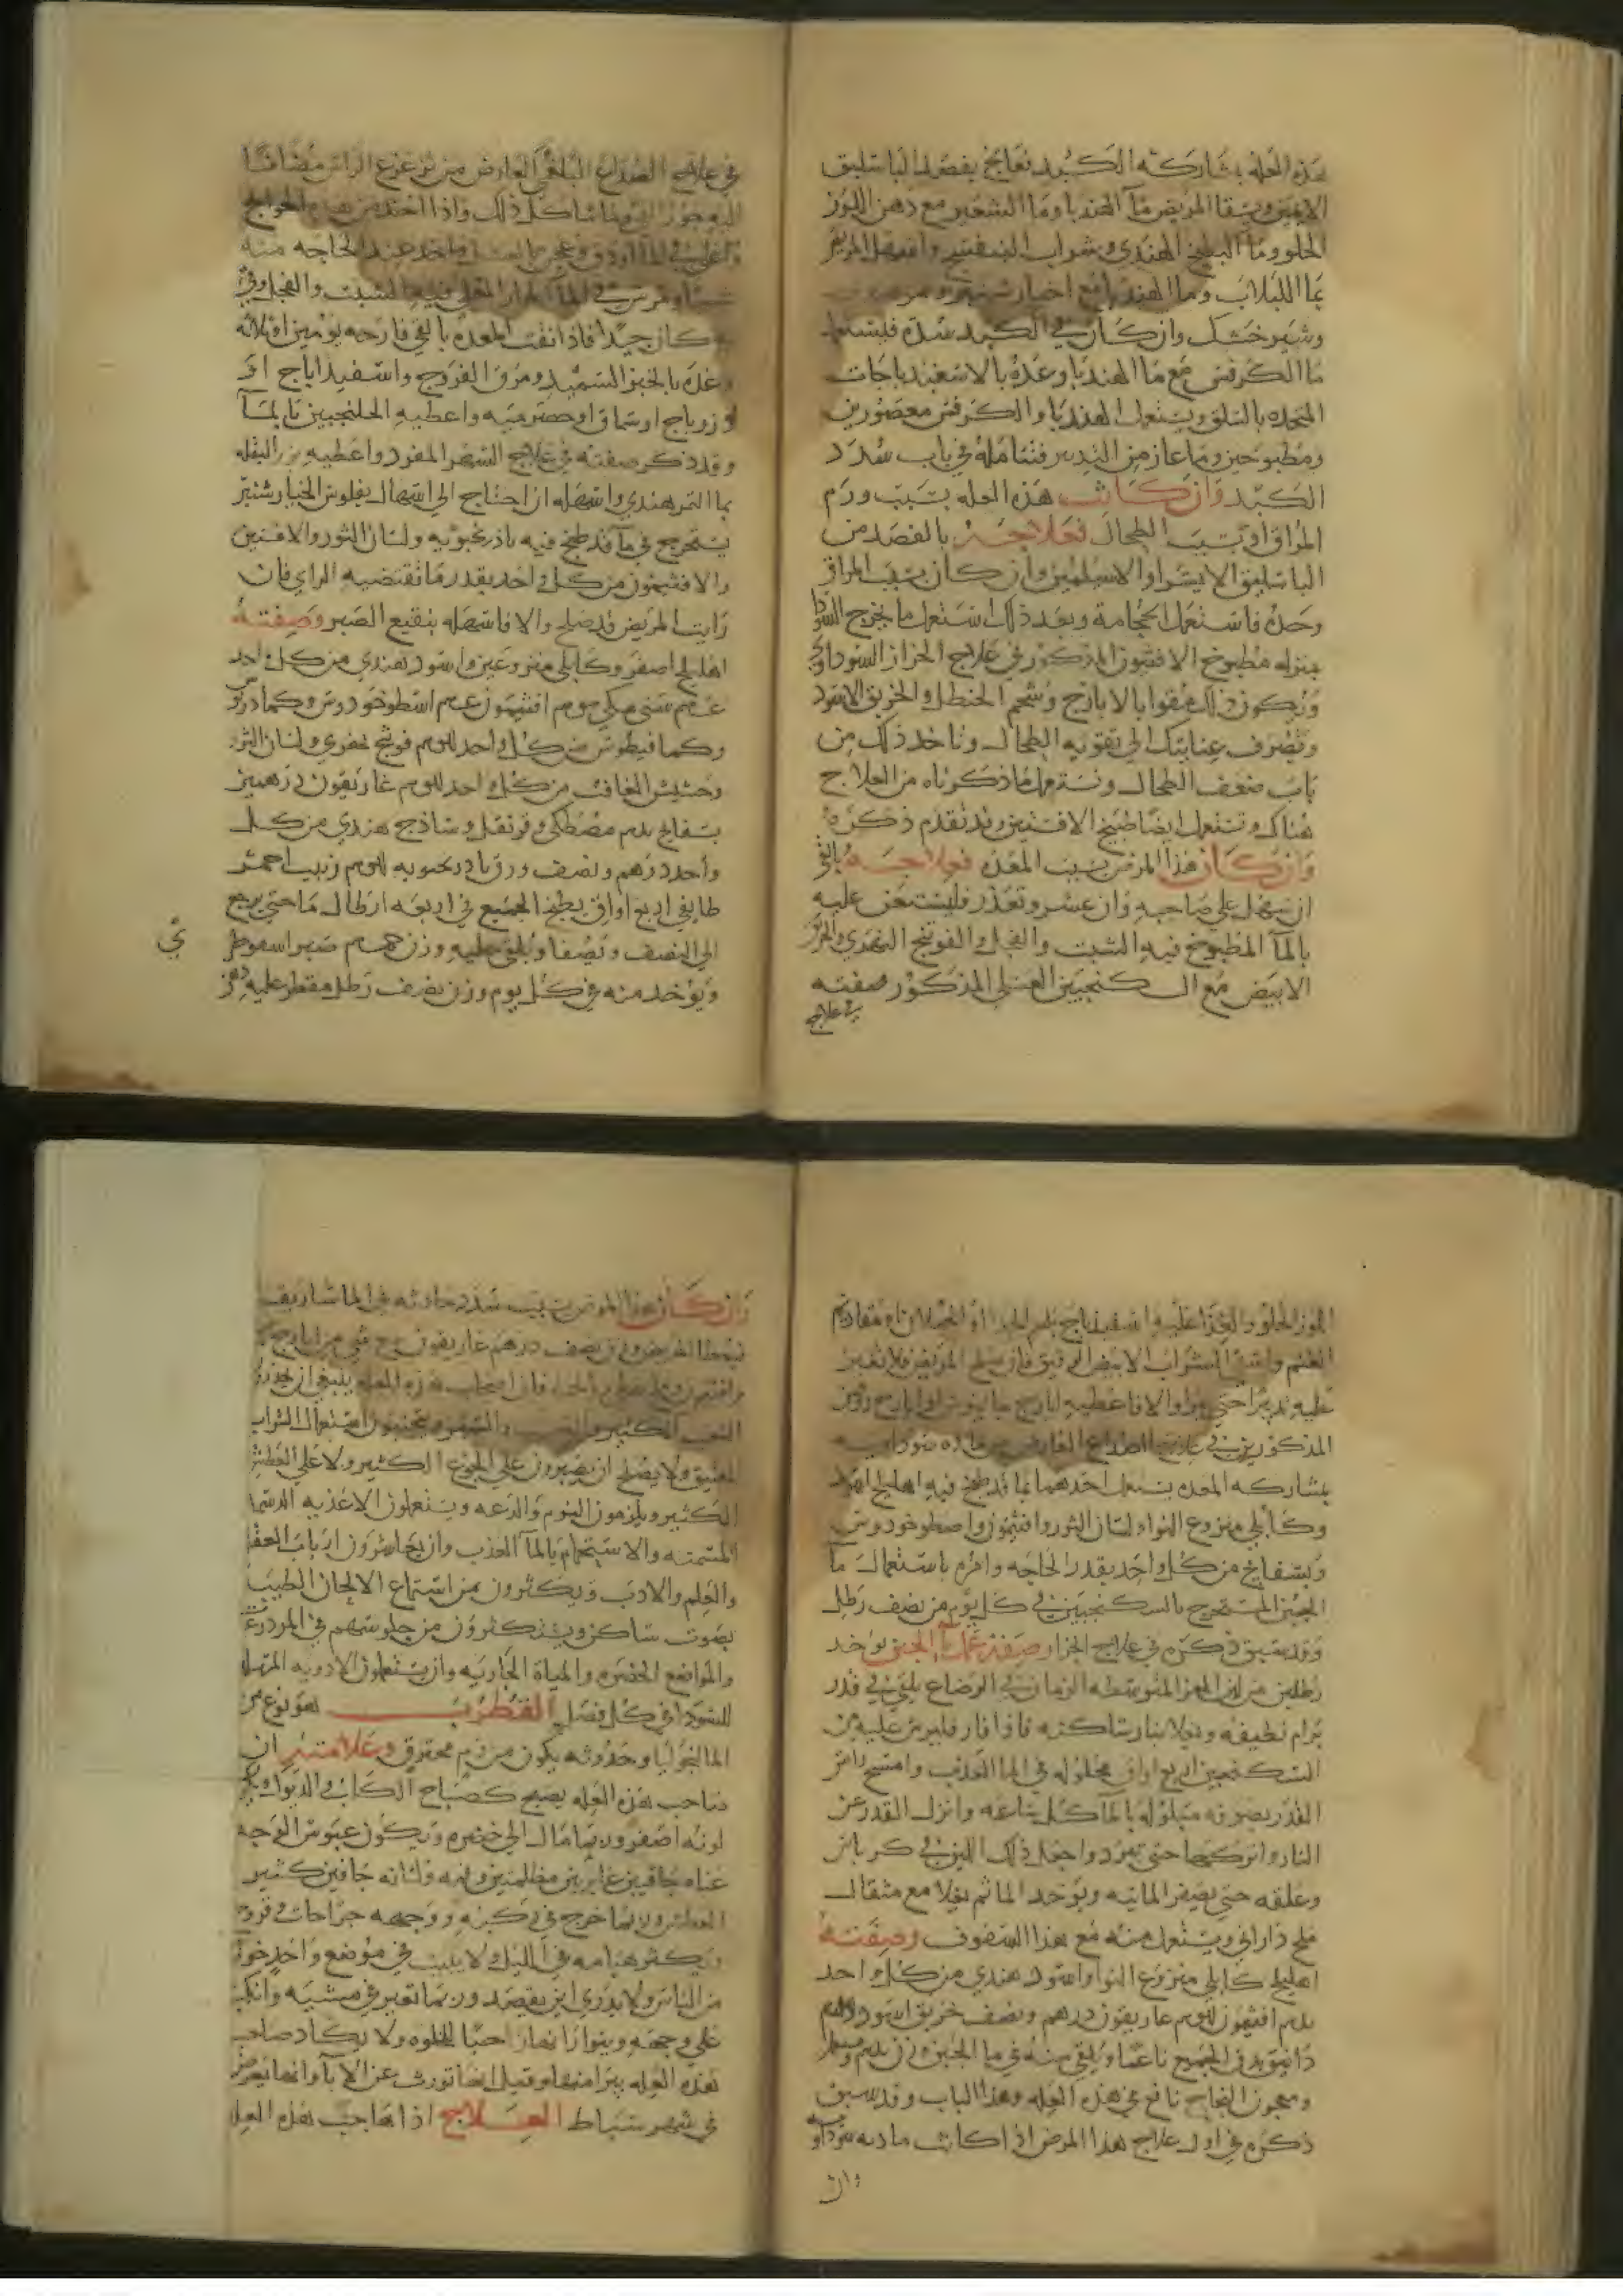 هذه العله بمشاركه الكبد فعالج بفصد الباسليق
الايمن وسقا المريض ما الهندبا وما الشعير مع دهن اللوز
الحلو وما البطيخ الهندي وشراب البنفسج واسهل المريض
بما اللبلاب وما الهندبا مع خيار شنبر
وشير خشك وان كان في الكبد سده فليستعمل
ما الكرفس مع ما الهندبا وغذه بالاسفيدباجات
المتخذه بالسلق ويستعمل الهندبا والكرفس معصورين
ومطبوخين وما عاز من التدبير فتتامله في باب سدد
الكبد وان كانت هذه العله بسبب ورم
المراق او بسبب الطحال فعلاجه بالفصد من
الباسليق الايسر او الاسيلم وان كان بسبب المراق
وحده فاستعمل الحجامة وبعد ذلك نستعمل ما يخرج السودا
بمنزله مطبوخ الافتيمون المذكور في علاج الحزاز السوداوي
ويكون ذلك مقوا بالايارج وشحم الحنطل والخربق الاسود
وتصرف عنايتك الي تقويه الطحال وتاخذ ذلك من
باب ضعف الطحال وتستعمل ما ذكرناه من العلاج
هناك وتستعمل ايضا طبيخ الافسنتين وقد تقدم ذكره
وان كان هذا المرض بسبب المعده فعلاجه بالقي
ان سهل علي صاحبه وان عسر وتعذر فليستعن عليه
بالما المطبوخ فيه الشبت والفجل والفوتنج النهري والخربق
الابيض مع السكنجبين العسلي المذكور صفته
في علاج
في علاج الصداع البلغمي العارض من تزعزع الراس مضافا
اليه جوز القي وما شاكل ذلك واذا اخذ من هذه الحوايج
عند الحاجه منه
فيه الشبت والفجل وقي
به كان جيدا فاذا نقت المعده بالقي فارحه يومين او ثلاثه
وغذه بالخبز السميد ومرق الفروج واسفيداباج او
او زرباج او سماق او حصرميه واعطيه الجلنجبين بالما
وقد ذكر صفته في علاج السهر المفرد واعطيه بزر البقله
بما التمر هندي واسهله ان احتاج الي اسهال بفلوس الخيار شنبر
يستخرج في ما قد طبخ فيه باذرنجبويه ولسان الثور والافسنتين
والافتيمون من كل واحد بقدر ما تقتضيه الراي فان
رايت المريض قد صلح والا فاسهله بنقيع الصبر وصفته
اهليلج اصفر وكابلي منزوعين واسود هندي من كل واحد
سني مكي افتيمون اسطوخودوس وكمادريوس
وكمافيطوس من كل واحد فوتنج نهري ولسان الثور
وحشيش الغافت من كل واحد غاريقون درهمين
بسفايج مصطكي وقرنفل وساذج هندي من كل
واحد درهم ونصف ورق بادرنجبويه زبيب احمر
طايفي اربع اواق يطبخ الجميع في اربعه ارطال ما حتي يرجع
الي النصف ويصفا ويلقي عليه وزن صبر اسقوطري
ويوخذ منه في كل يوم وزن نصف رطل مقطر عليه دهن
اللوز الحلو والغذا عليه اسفيدباج بلحم الجدا او الحملان او مقاديم
الغنم واسقي الشراب الابيض الرقيق فان صلح المريض فلا تغير
عليه تدبيرا حتي يبرا والا فاعطيه ايارج جالينوس او ايارج روفس
المذكورين في علاج الصداع العارض من ماده سوداويه
بمشاركه المعده يستعمل احدهما بما قد طبخ فيه اهليلج اسود
وكابلي منزوع النوا ولسان الثور وافتيمون واسطوخودوس
وبسفايج من كل واحد بقدر الحاجه وامره باستعمال ما
الجبن المستخرج بالسكنجبين في كل يوم من نصف رطل
وقد سبق ذكره في علاج الحزاز وصفة عمل ما الجبن يوخذ
رطلين من لبن المعز المتوسطه الزمان في الوضاع يلقي في قدر
برام نظيفه ويغلا بنار ساكنه فاذا فار فليرش عليه من
السكنجبين اربع اواق محلوله في الما العذب وامسح داير
القدر بصوفه مبلوله بالما كل ساعه وانزل القدر عن
النار واتركها حتي تبرد واجعل ذلك اللبن في كرباس
وعلقه حتي يصفر المائيه ويوخذ الما ثم يغلا مع مثقال
ملح داراني ويستعمل منه مع هذا السفوف وصفته
اهليلج كابلي منزوع النوا واسود هندي من كل واحد
افتيمون غاريقون درهم ونصف خربق اسود
دانق يدق الجميع ناعما ويلقي منه في ما الجبن وزن
ومعجون النجاح نافع في هذه العله وهذا الباب وقد سبق
ذكره في اول علاج هذا المرض اذا كانت مادته سوداويه
وان
وان كان هذا المرض بسبب سدد حادثه في الماساريقا
فيعطا المريض وزن نصف درهم غاريقون مع شي من ايارج
فان اصحاب هذه العله ينبغي ان يحذروا
التعب الكثير والسهر ويتجنبون استعمال الشراب
العتيق ولا يصلح ان يصبرون علي الجوع الكثير ولا علي العطش
الكثير ويلزمون النوم والدعه ويستعملون الاغذيه الدسمه
المسمنه والاستحمام بالما العذب وان يعاشرون ارباب العقل
والعلم والادب ويكثرون من استماع الالحان الطيب
بصوت ساكن ويستكثرون من جلوسهم في المروج
والمواضع الخضره والمياه الجاريه وان يستعملون الادويه المسهله
للسودا في كل فصل القطرب هو نوع من
المالنخوليا وحدوثه يكون من دم محترق وعلامته ان
صاحب هذه العله يصبح كصياح الكلاب والديوك
لونه اصفر وربما مال الي خضره ويكون عبوس الوجه
عيناه جافين غايرين مظلمتين وفمه ولسانه جافين كثير
العطش وربما خرج في ركبته ووجهه جراحات وقروح
ويكثر هيامه في الليل ولا يلبث في موضع واحد خوفا
من الناس ولا يدري اين يقصد وربما تعثر في مشيه وانكب
علي وجهه ويتوارا نهارا حبا للخلوه ولا يكاد صاحب
هذه العله يبرا منها وقيل انها تورث عن الابا وانها تعرض
في شهر سباط العلاج اذا هاجت هذه العله